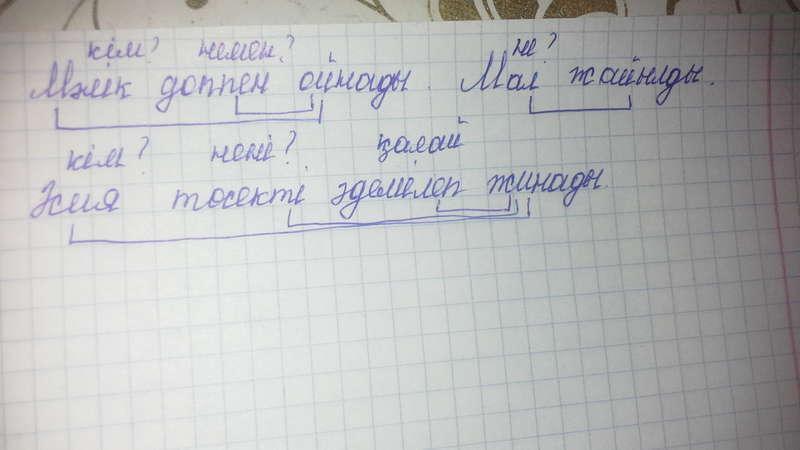 кім? немен? не?
Мәлік доппен ойнады. Мал жайылды.
кім? нені? қалай
Жия төсекті әдемілеп жинады.